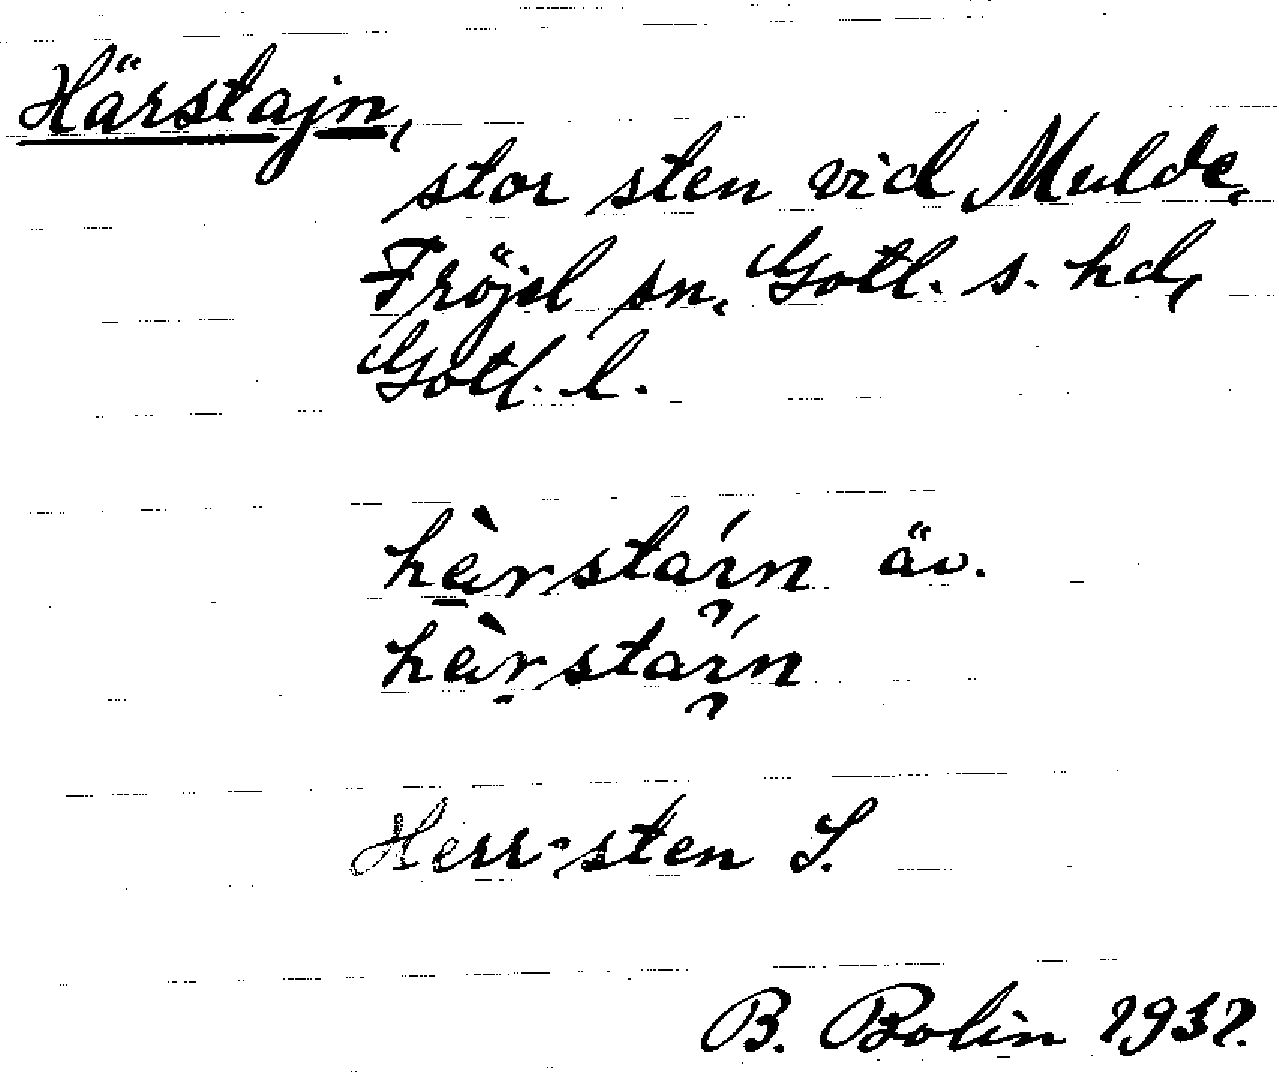 Härstajn,
stor sten vid Mulde,
Fröjel sn, Gotl. s. hd,
Gotl. l.
hæ̀rstain äv.
hæ̀rstain
Herr-sten S.
B. Bolin 1931.